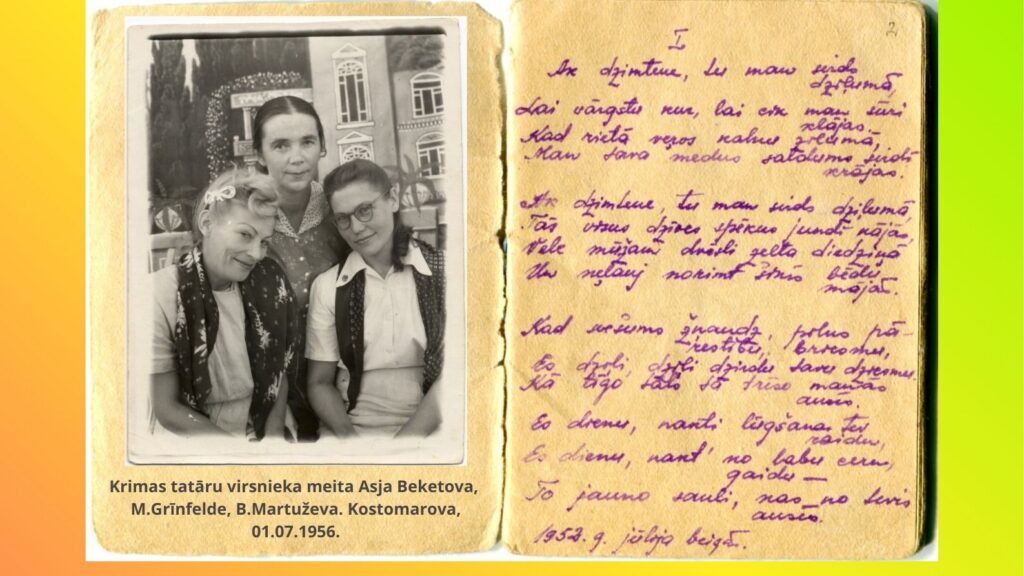 Krimas tatāru virsnieka meita Asja Beketova,
M.Grīnfelde, B.Martuževa. Kostomarova,
01.07.1956.
2
I
Ak dzimtene, tu man sirds
dziļumā,
Lai vārgstu kur, lai cik man sūri
klājas.
Kad rietā veros kalnu zilumā,
Man tava medus saldums sirdī
krājas.
Ak dzimtene, tu man sirds dziļumā,
Tās visus dzīves spēkus
Velk mūžam dvēsli zelta diedziņā
Un neļauj norimt šinīs bēdu
mājās.
Kad svešums žņaudz, pilns pā-
restību, briesmu,
Es dziļi, dziļi dzirdu tavu dziesmu
Kā līgo tā manās
ausīs.
Es dienu, nakti lūgšanas tev
raidu,
Es dienu, nakt' labu ceru,
gaidu —
To jauno sauli, kas no tevis
ausīs.
g. jūlija beigās.